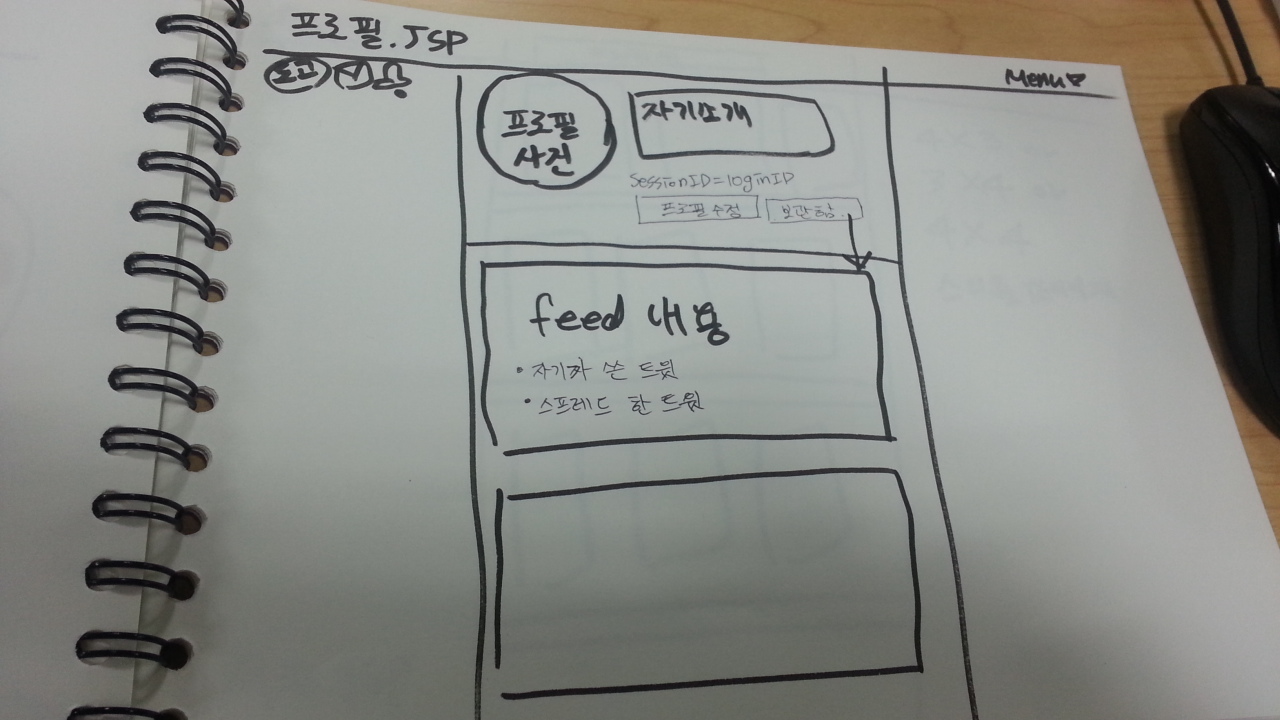 프로필.JSP
로고
Menu
프로필
사진
자기소개
SessionID=loginID
프로필 수정
보관함
feed 내용
• 자기가 쓴 트윗
• 스프레드 한 트윗